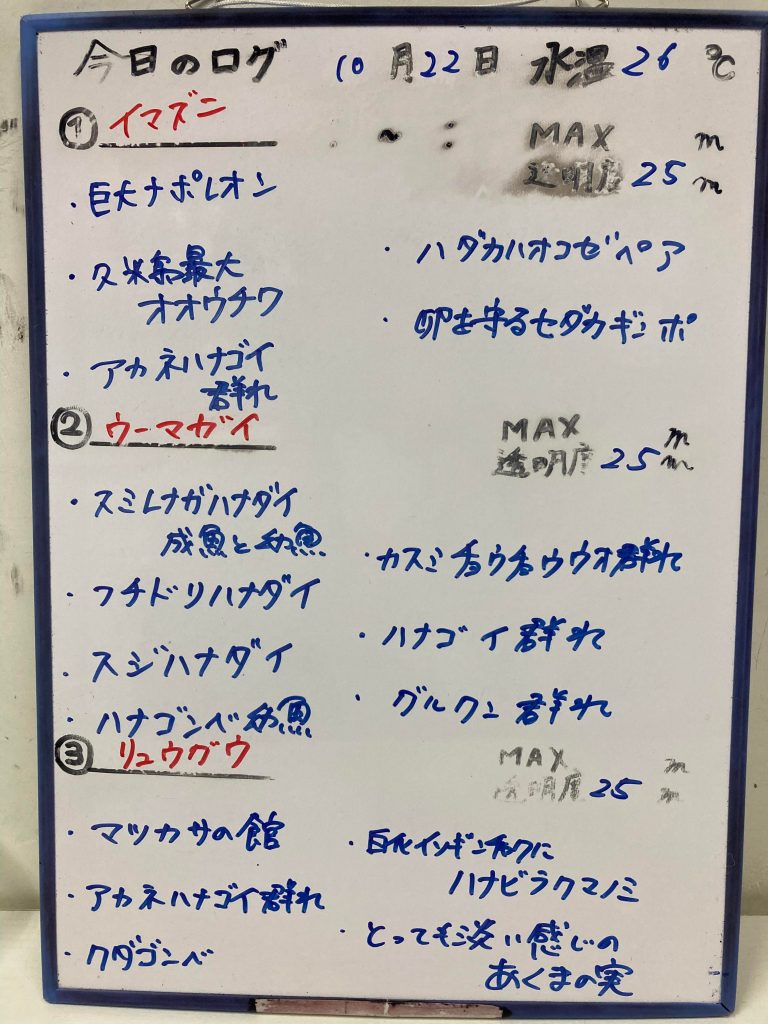 今日のログ 10月22日 水温26℃
① イマズニ
~ : MAX m
透明度 25 m
・巨大ナポレオン
・久米島最大
オオウチワ
・アカネハナゴイ
群れ
・ハダカハオコゼペア
・卵を守るセダカギンポ
② ウーマガイ
MAX m
透明度 25 m
・スミレナガハナダイ
成魚と幼魚
・フチドリハナダイ
・スジハナダイ
・ハナゴンベ幼魚
・カスミチョウチョウウオ群れ
・ハナゴイ群れ
・グルクン群れ
③ リュウグウ
MAX m
透明度 25 m
・マツカサの館
・アカネハナゴイ群れ
・クダゴンベ
・白化イソギンチャクに
ハナビラクマノミ
・とっても淡い感じの
あくまの実